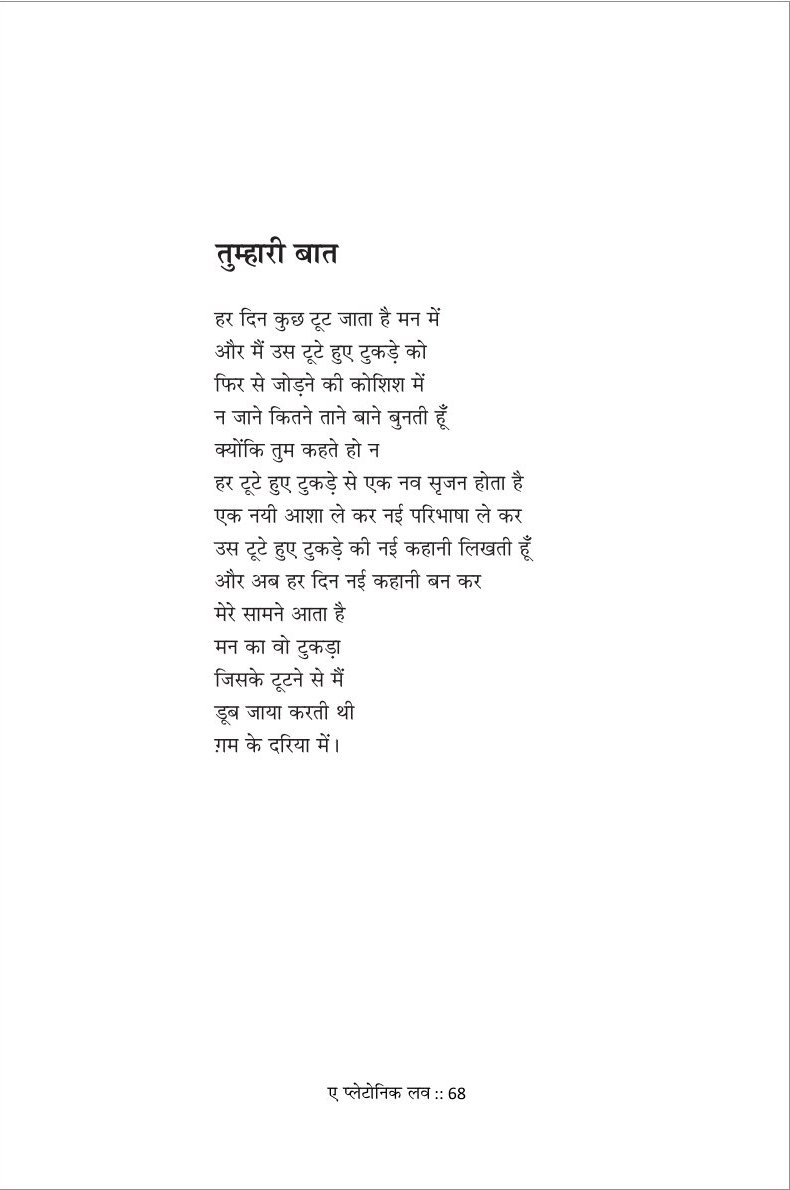 तुम्हारी बात
हर दिन कुछ टूट जाता है मन में
और मैं उस टूटे हुए टुकड़े को
फिर से जोड़ने की कोशिश में
न जाने कितने ताने बाने बुनती हूँ
क्योंकि तुम कहते हो न
हर टूटे हुए टुकड़े से एक नव सृजन होता है
एक नयी आशा ले कर नई परिभाषा ले कर
उस टूटे हुए टुकड़े की नई कहानी लिखती हूँ
और अब हर दिन नई कहानी बन कर
मेरे सामने आता है
मन का वो टुकड़ा
जिसके टूटने से मैं
डूब जाया करती थी
ग़म के दरिया में।
ए प्लेटोनिक लव :: 68